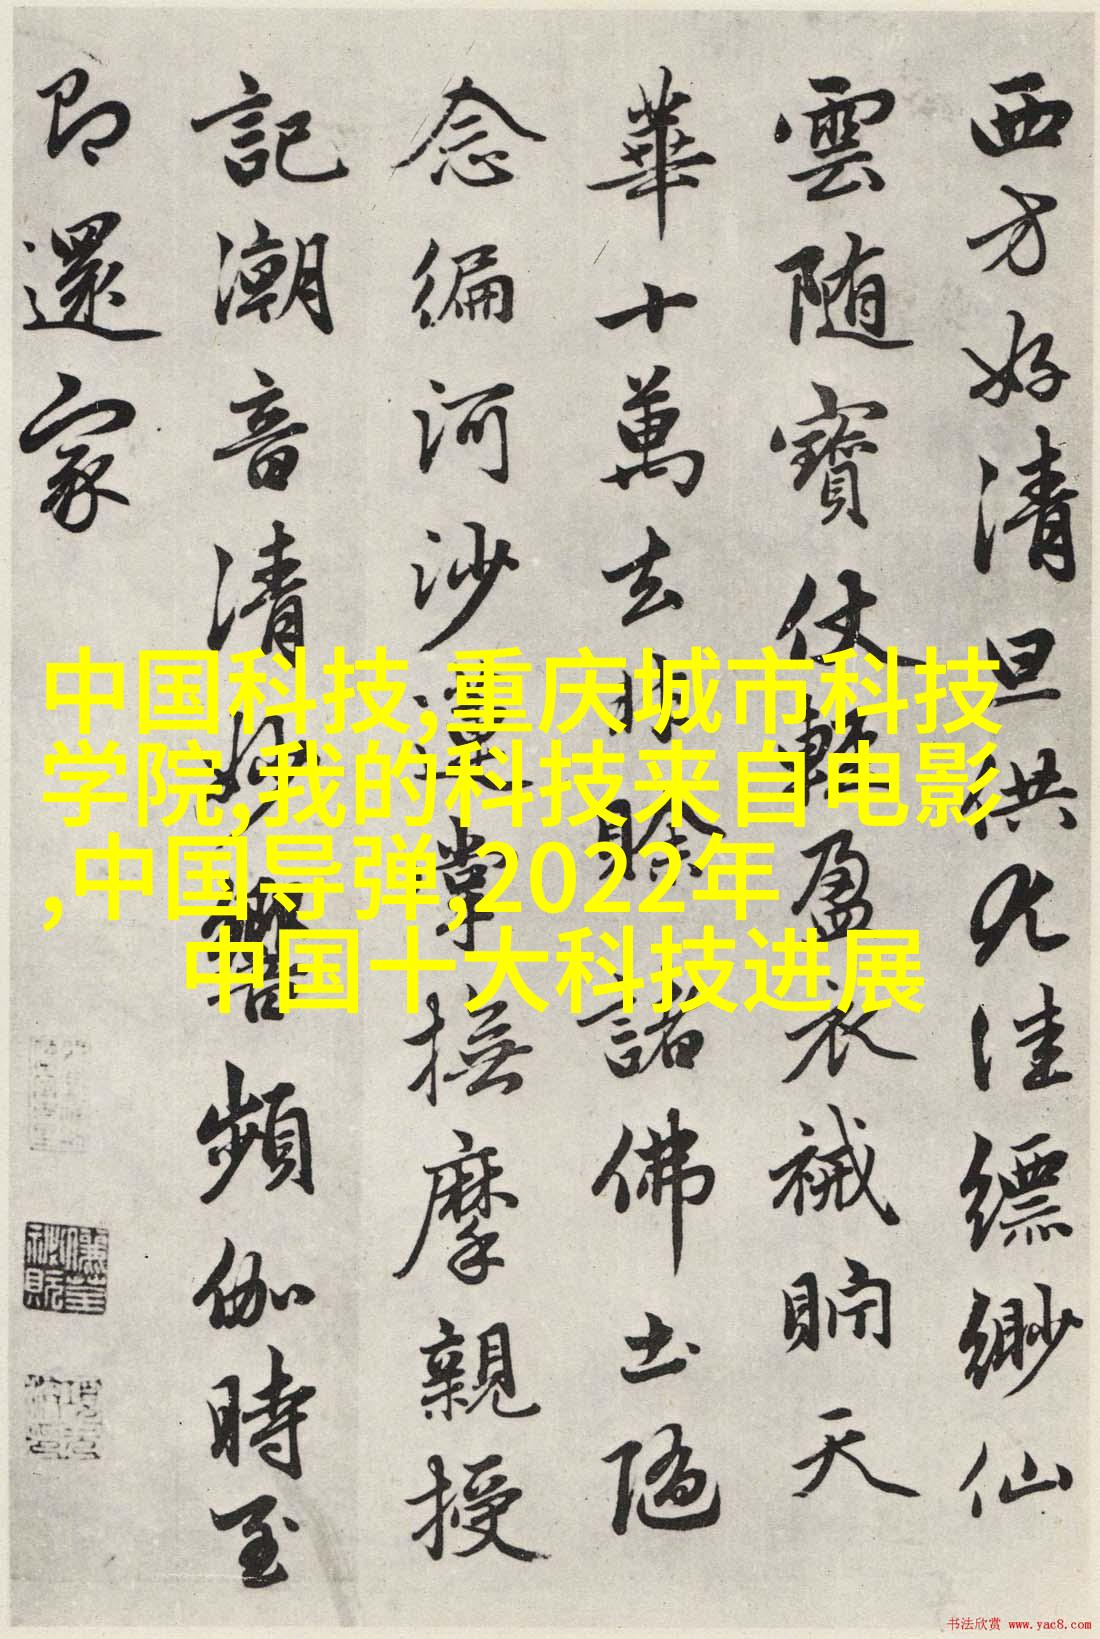 西方好清旦供九洼缥缈仙
雲随寶仗輕盈衣裓貯天
華十萬去時賒諸佛土隨
念編河沙還掌撫摩親授
記潮音清妙響頻伽時至
即還家
中国科技,重庆城市科技
学院,我的科技来自电影
,中国导弹,2022年
中国十大科技进展
书法欣赏 www.yac8.com